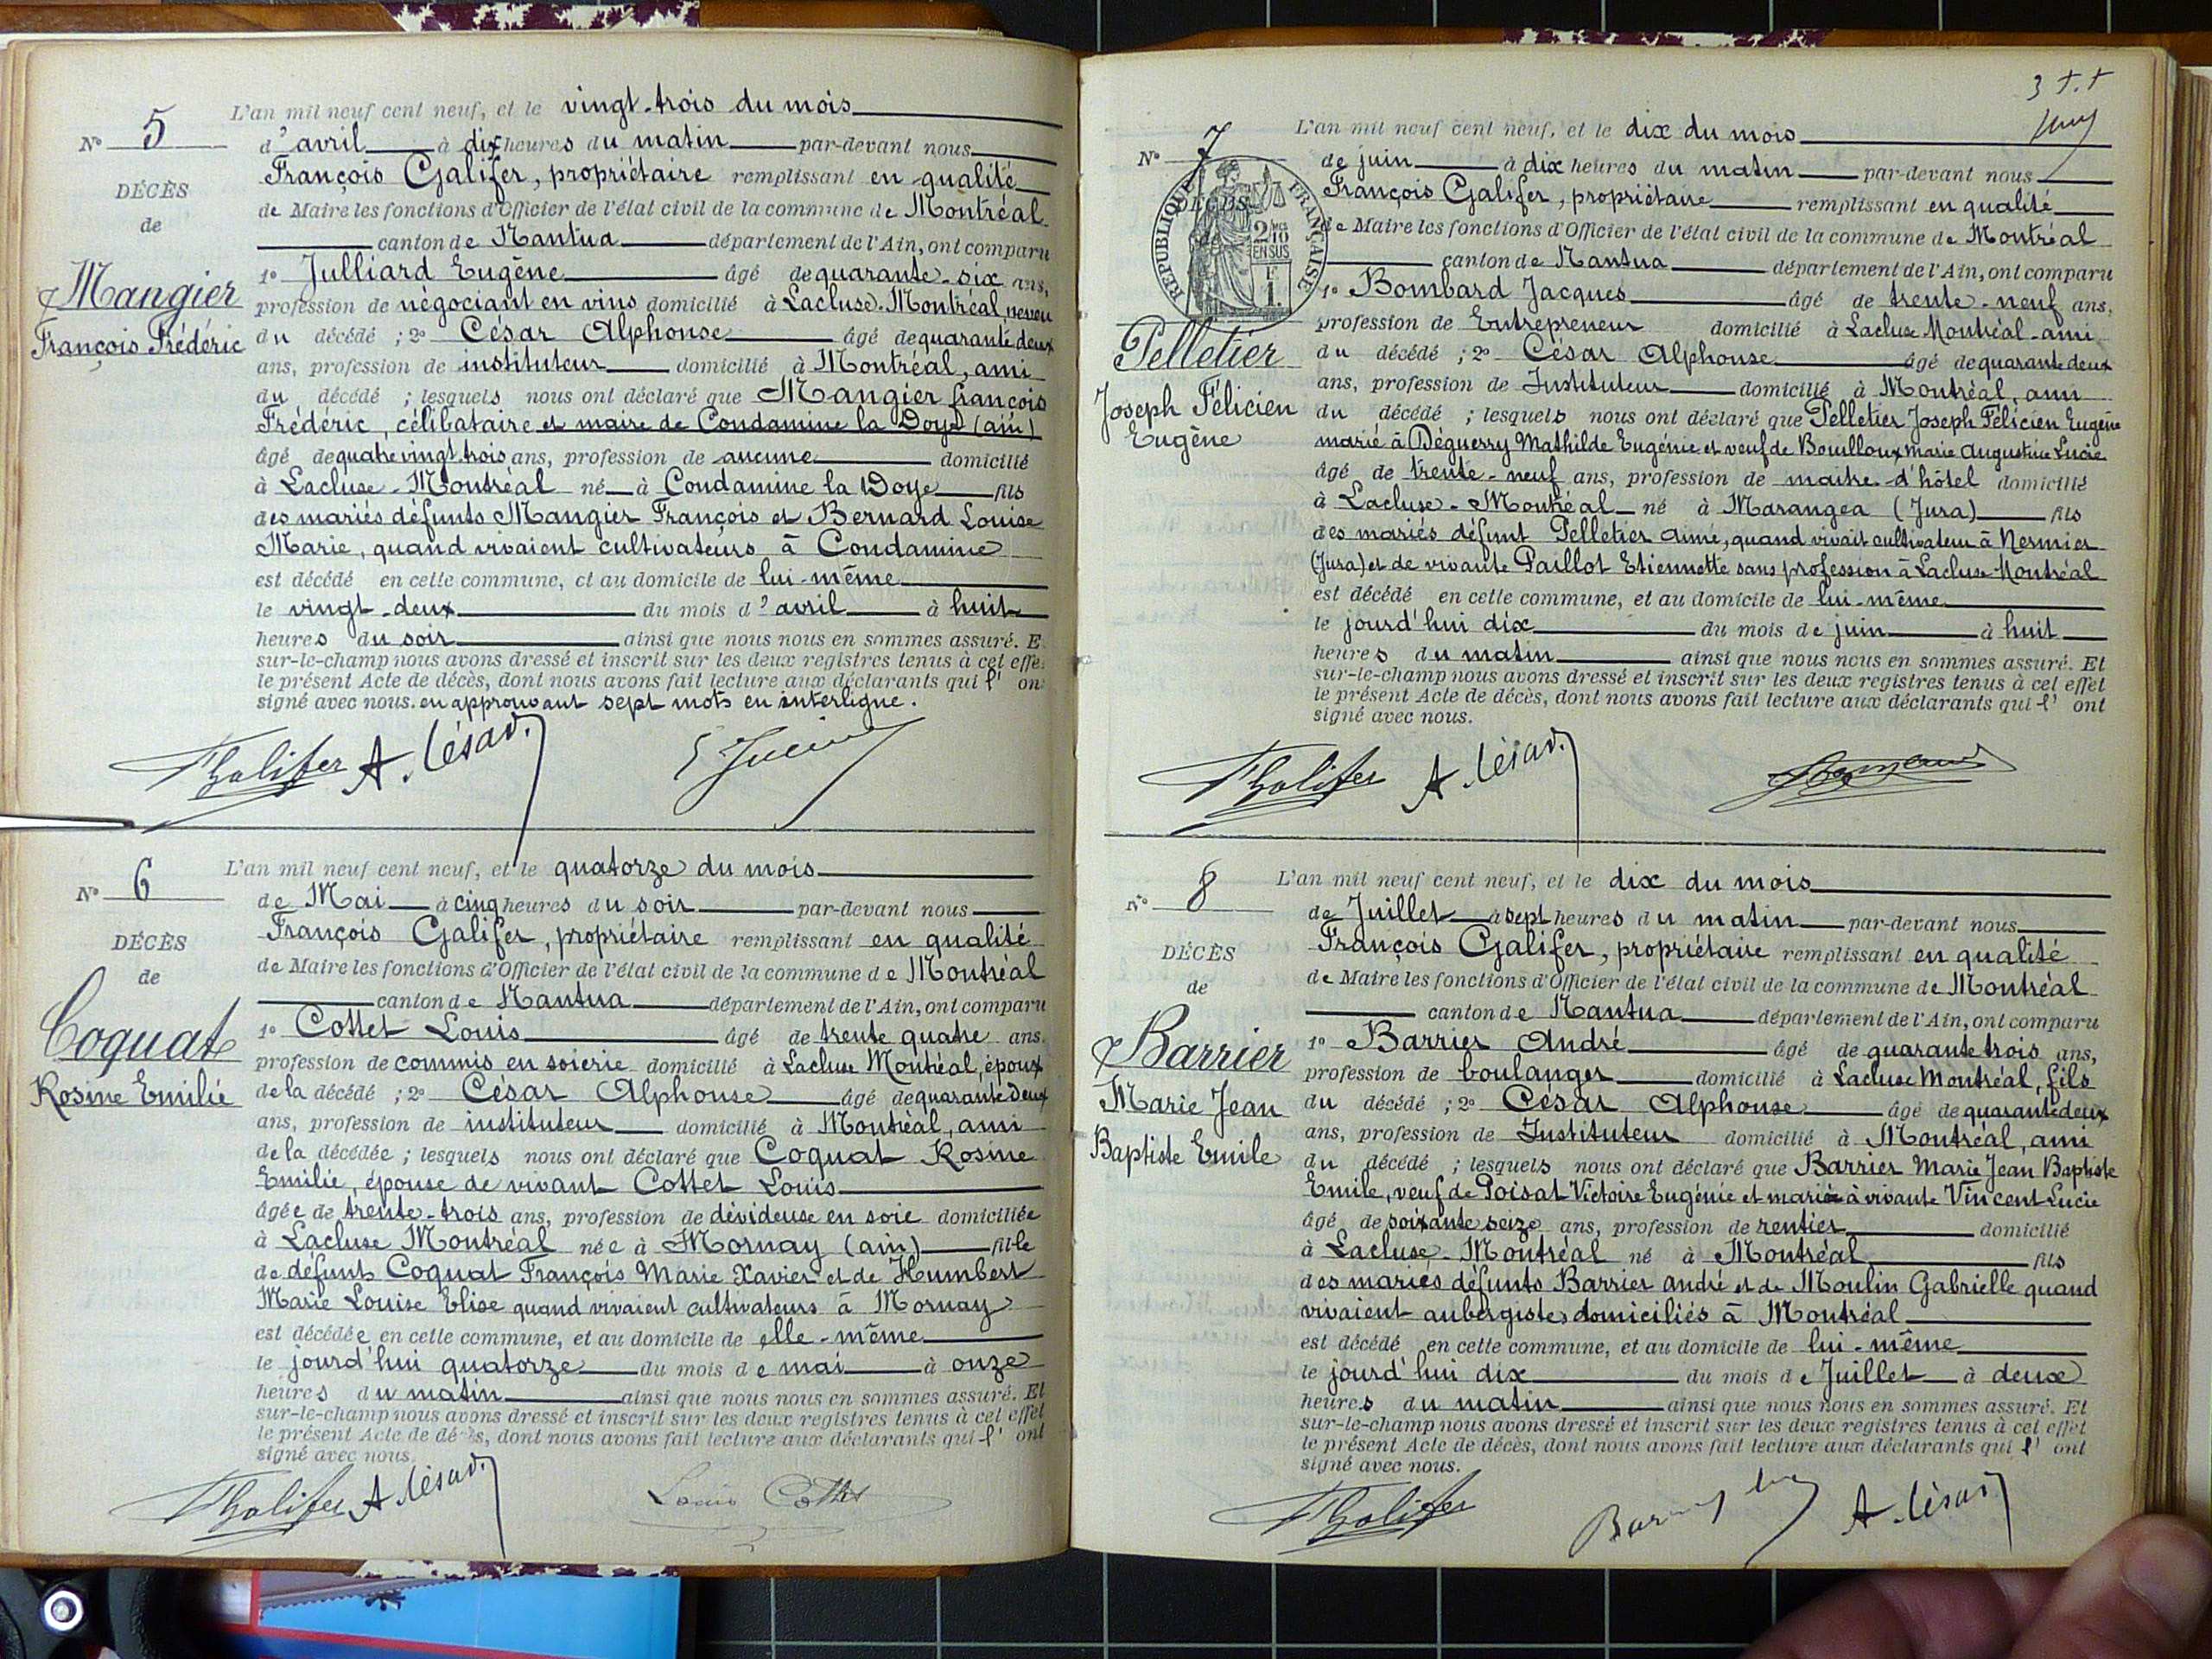 L'an mil neuf cent neuf, et le vingt-trois du mois
N° 5
d'avril à dix heures du matin par-devant nous
François Galifer, propriétaire remplissant en qualité
DÉCÈS
de
de Maire les fonctions d'Officier de l'état civil de la commune de Montréal
canton de Nantua département de l'Ain, ont comparu
1° Julliard Eugène âgé de quarante-six ans,
Mangier
François Frédéric
profession de négociant en vins domicilié à Lacluse-Montréal, neveu
du décédé ; 2° César Alphonse âgé de quarante deux
ans, profession de instituteur domicilié à Montréal, ami
du décédé ; lesquels nous ont déclaré que Mangier françois
Frédéric, célibataire et maire de Condamine la Doye (ain)
âgé de quatre vingt trois ans, profession de aucune domicilié
à Lacluse-Montréal né à Condamine la Doye fils
des mariés défunts Mangier François et Bernard Louise
Marie, quand vivaient cultivateurs à Condamine
est décédé en cette commune, et au domicile de lui-même
le vingt-deux du mois d'avril à huit
heures du soir ainsi que nous nous en sommes assuré. E
sur-le-champ nous avons dressé et inscrit sur les deux registres tenus à cet effe
le présent Acte de décès, dont nous avons fait lecture aux déclarants qui l' on
signé avec nous. en approuvant sept mots en interligne.
A. César
L'an mil neuf cent neuf, et le quatorze du mois
N° 6
de Mai à cinq heures du soir par-devant nous
François Galifer, propriétaire remplissant en qualité
DÉCÈS
de
de Maire les fonctions d'Officier de l'état civil de la commune de Montréal
canton de Nantua département de l'Ain, ont comparu
1° Cottet Louis âgé de trente quatre ans.
Coquat
Rosine Emilie
profession de commis en soierie domicilié à Lacluse Montréal, époux
de la décédé ; 2° César Alphonse âgé de quarante deux
ans, profession de instituteur domicilié à Montréal, ami
de la décédée ; lesquels nous ont déclaré que Coquat Rosine
Emilie, épouse de vivant Cottet Louis
âgée de trente-trois ans, profession de dévideuse en soie domiciliée
à Lacluse Montréal née à Mornay (ain) fille
de défunts Coquat François Marie Xavier et de Humbert
Marie Louise Elise quand vivaient cultivateurs à Mornay
est décédée en cette commune, et au domicile de elle-même
le jourd'hui quatorze du mois de mai à onze
heures du matin ainsi que nous nous en sommes assuré. Et
sur-le-champ nous avons dressé et inscrit sur les deux registres tenus à cet effet
le présent Acte de décès, dont nous avons fait lecture aux déclarants qui l' ont
signé avec nous.
A. César
Louis Cottet
3
L'an mil neuf cent neuf, et le dix du mois
N° 7
de juin à dix heures du matin par-devant nous
François Galifer, propriétaire remplissant en qualité
RÉPUBLIQUE FRANÇAISE
2/10 EN SUS
F 1.
de Maire les fonctions d'Officier de l'état civil de la commune de Montréal
canton de Nantua département de l'Ain, ont comparu
1° Bombard Jacques âgé de trente-neuf ans,
profession de Entrepreneur domicilié à Lacluse Montréal ami
Pelletier
Joseph Félicien
Eugène
du décédé ; 2° César Alphonse âgé de quarant deux
ans, profession de Instituteur domicilié à Montréal, ami
du décédé ; lesquels nous ont déclaré que Pelletier Joseph Félicien Eugène
marié à Déguerry Mathilde Eugénie et veuf de Bouilloux Marie Augustine Lucie
âgé de trente-neuf ans, profession de maitre-d'hôtel domicilié
à Lacluse-Montréal né à Marangea (Jura) fils
des mariés défunt Pelletier Aimé, quand vivait cultivateur à Nermier
(Jura) et de vivante Paillot Etiennette sans profession à Lacluse Montréal
est décédé en cette commune, et au domicile de lui-même
le jourd'hui dix du mois de juin à huit
heures du matin ainsi que nous nous en sommes assuré. Et
sur-le-champ nous avons dressé et inscrit sur les deux registres tenus à cet effet
le présent Acte de décès, dont nous avons fait lecture aux déclarants qui l' ont
signé avec nous.
A. César
L'an mil neuf cent neuf, et le dix du mois
N° 8
de Juillet à sept heures du matin par-devant nous
François Galifer, propriétaire remplissant en qualité
DÉCÈS
de
de Maire les fonctions d'Officier de l'état civil de la commune de Montréal
canton de Nantua département de l'Ain, ont comparu
1° Barrier André âgé de quarante trois ans,
Barrier
Marie Jean
Baptiste Emile
profession de boulanger domicilié à Lacluse Montréal, fils
du décédé ; 2° César Alphonse âgé de quarante deux
ans, profession de Instituteur domicilié à Montréal, ami
du décédé ; lesquels nous ont déclaré que Barrier Marie Jean Baptiste
Emile, veuf de Poisat Victoire Eugénie et marié à vivante Vincent Lucie
âgé de soixante seize ans, profession de rentier domicilié
à Lacluse-Montréal né à Montréal fils
des mariés défunts Barrier André et de Moulin Gabrielle quand
vivaient aubergistes domiciliés à Montréal
est décédé en cette commune, et au domicile de lui-même
le jourd'hui dix du mois de Juillet à deux
heures du matin ainsi que nous nous en sommes assuré. Et
sur-le-champ nous avons dressé et inscrit sur les deux registres tenus à cet effet
le présent Acte de décès, dont nous avons fait lecture aux déclarants qui l' ont
signé avec nous.
A. César